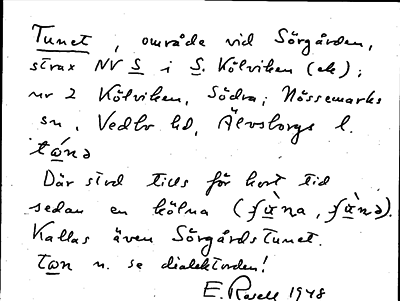 Tunet, område vid Sörgården,
strax NV S i S. Kölviken (ek);
nr 2 Kölviken, Södra; Nössemarks
sn, Vedbo hd, Älvsborgs l.
tὼnə
Där stod tills för kort tid
sedan en kölna (
Kallas även Sörgårdstunet.
n. se dialektorden!
E. Rosell 1948